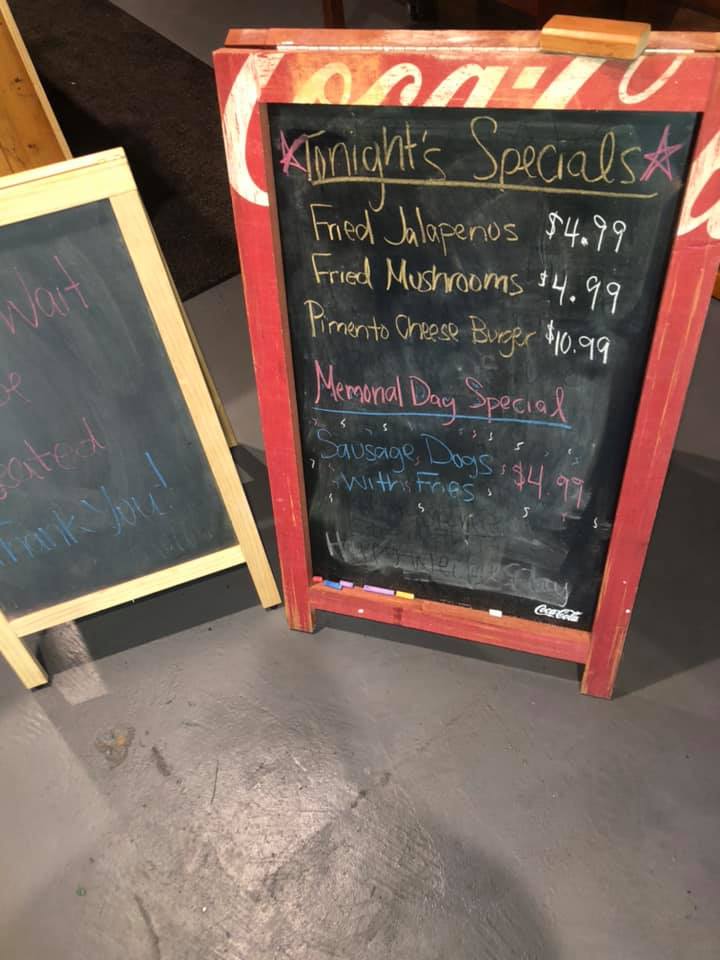 Coca-Co
Tonight's Specials
Fried Jalapenos $4.99
Fried Mushrooms $4.99
Pimento Cheese Burger $10.99
Memorial Day Special
Sausage Dogs
with Fries $4.99
Coca-Cola
Wait
Thank You!